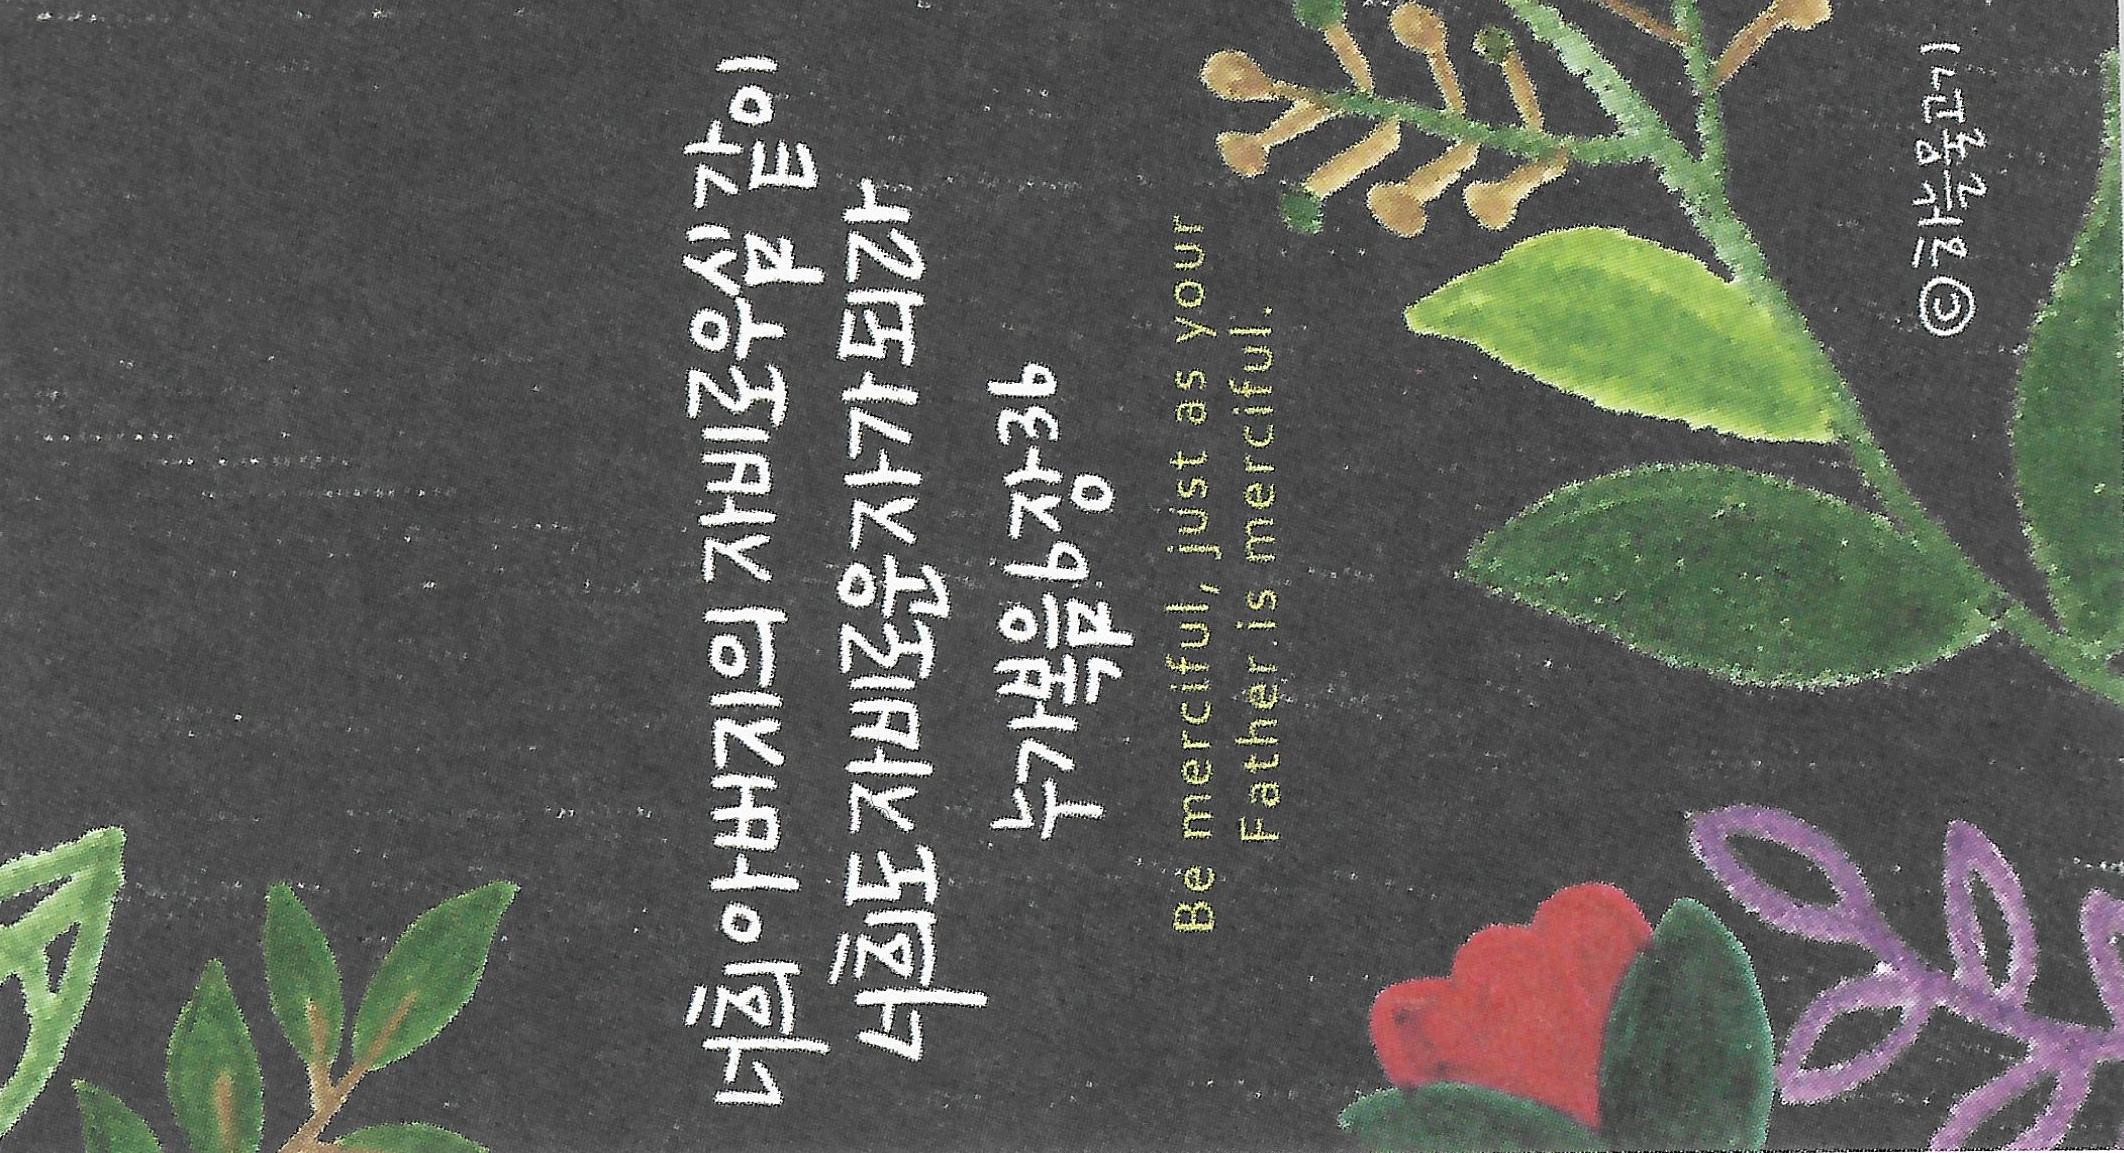 너희 아버지의 자비로우심 같이
너희도 자비로운 자가 되라
누가복음 6장 36
Be merciful, just as your
Father is merciful.
© 하늘물고기